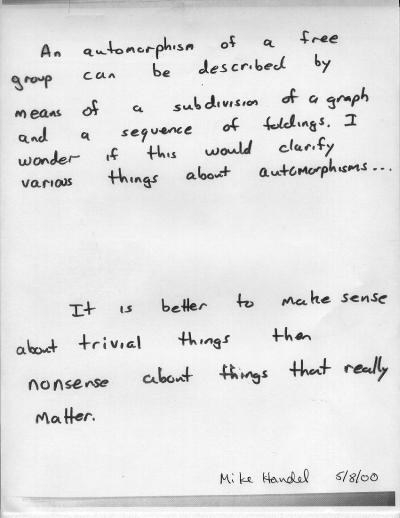 An automorphism of a free
group can be described by
means of a subdivision of a graph
and a sequence of foldings. I
wonder if this would clarify
various things about automorphisms...
It is better to make sense
about trivial things then
nonsense about things that really
matter.
Mike Handel 5/8/00